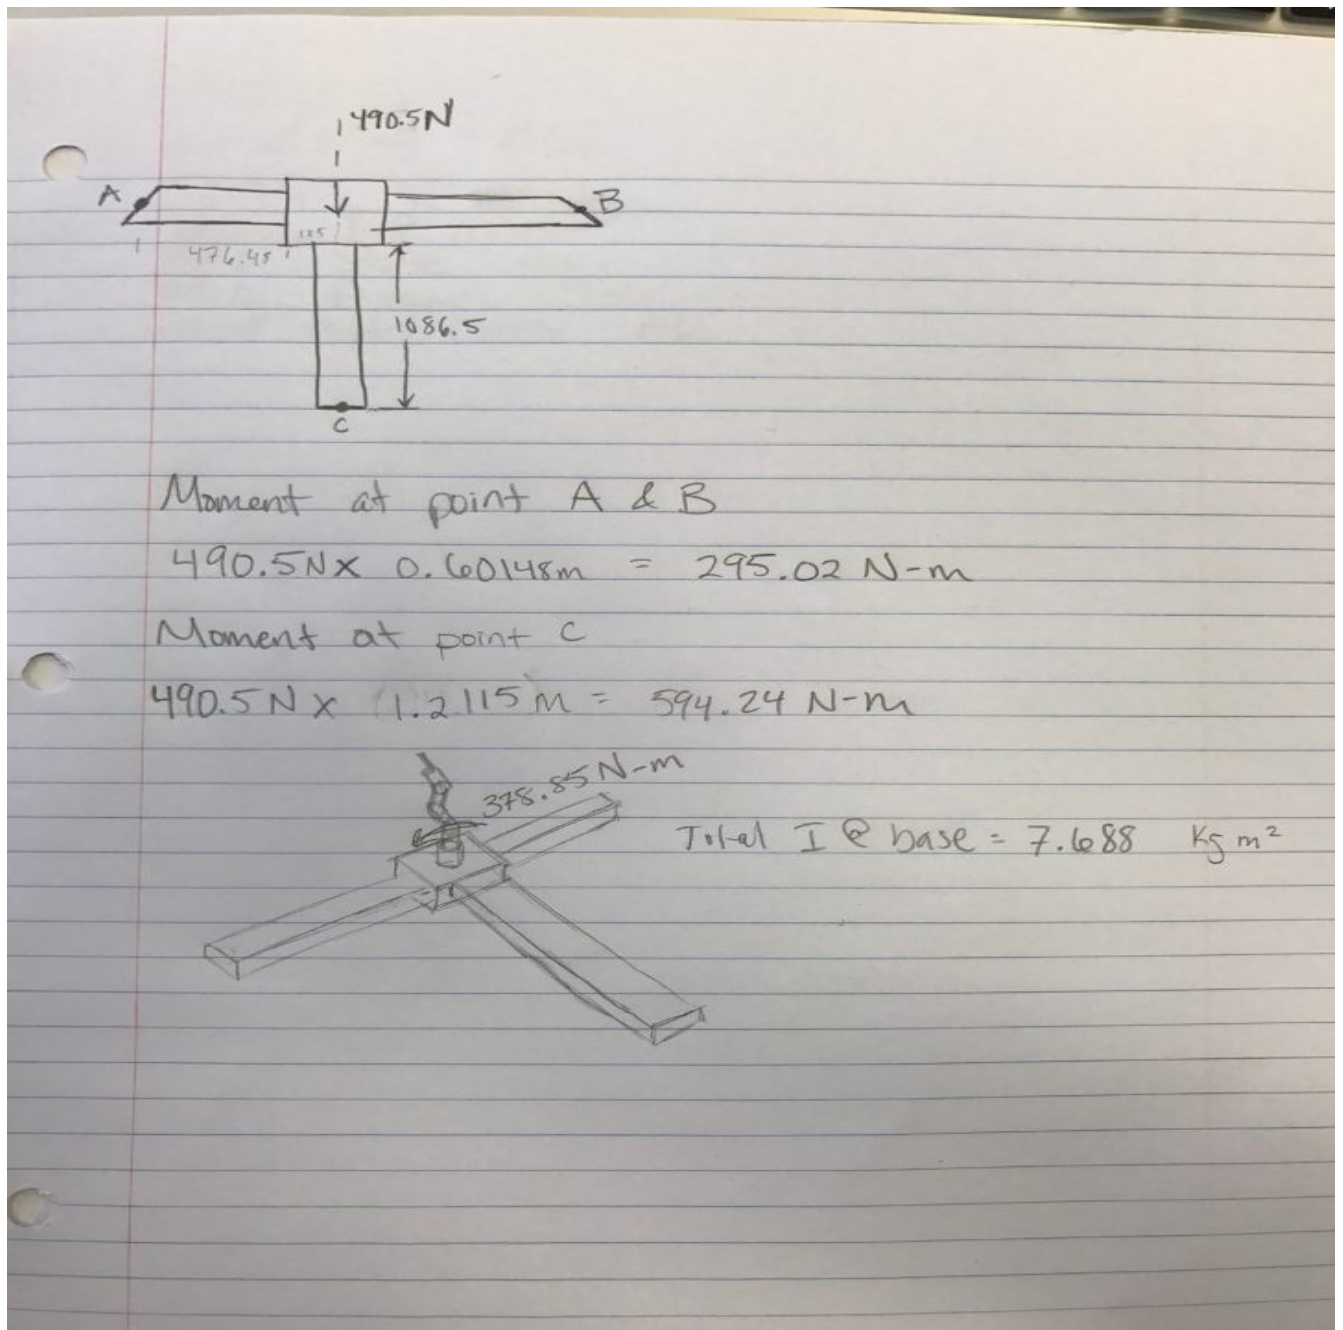 490.5N
A
B
125
476.48
1086.5
C
Moment at point A & B
490.5N x 0.60148m = 295.02 N-m
Moment at point C
490.5N x 1.2115m = 594.24 N-m
378.85 N-m
Total I @ base = 7.688 Kg m²